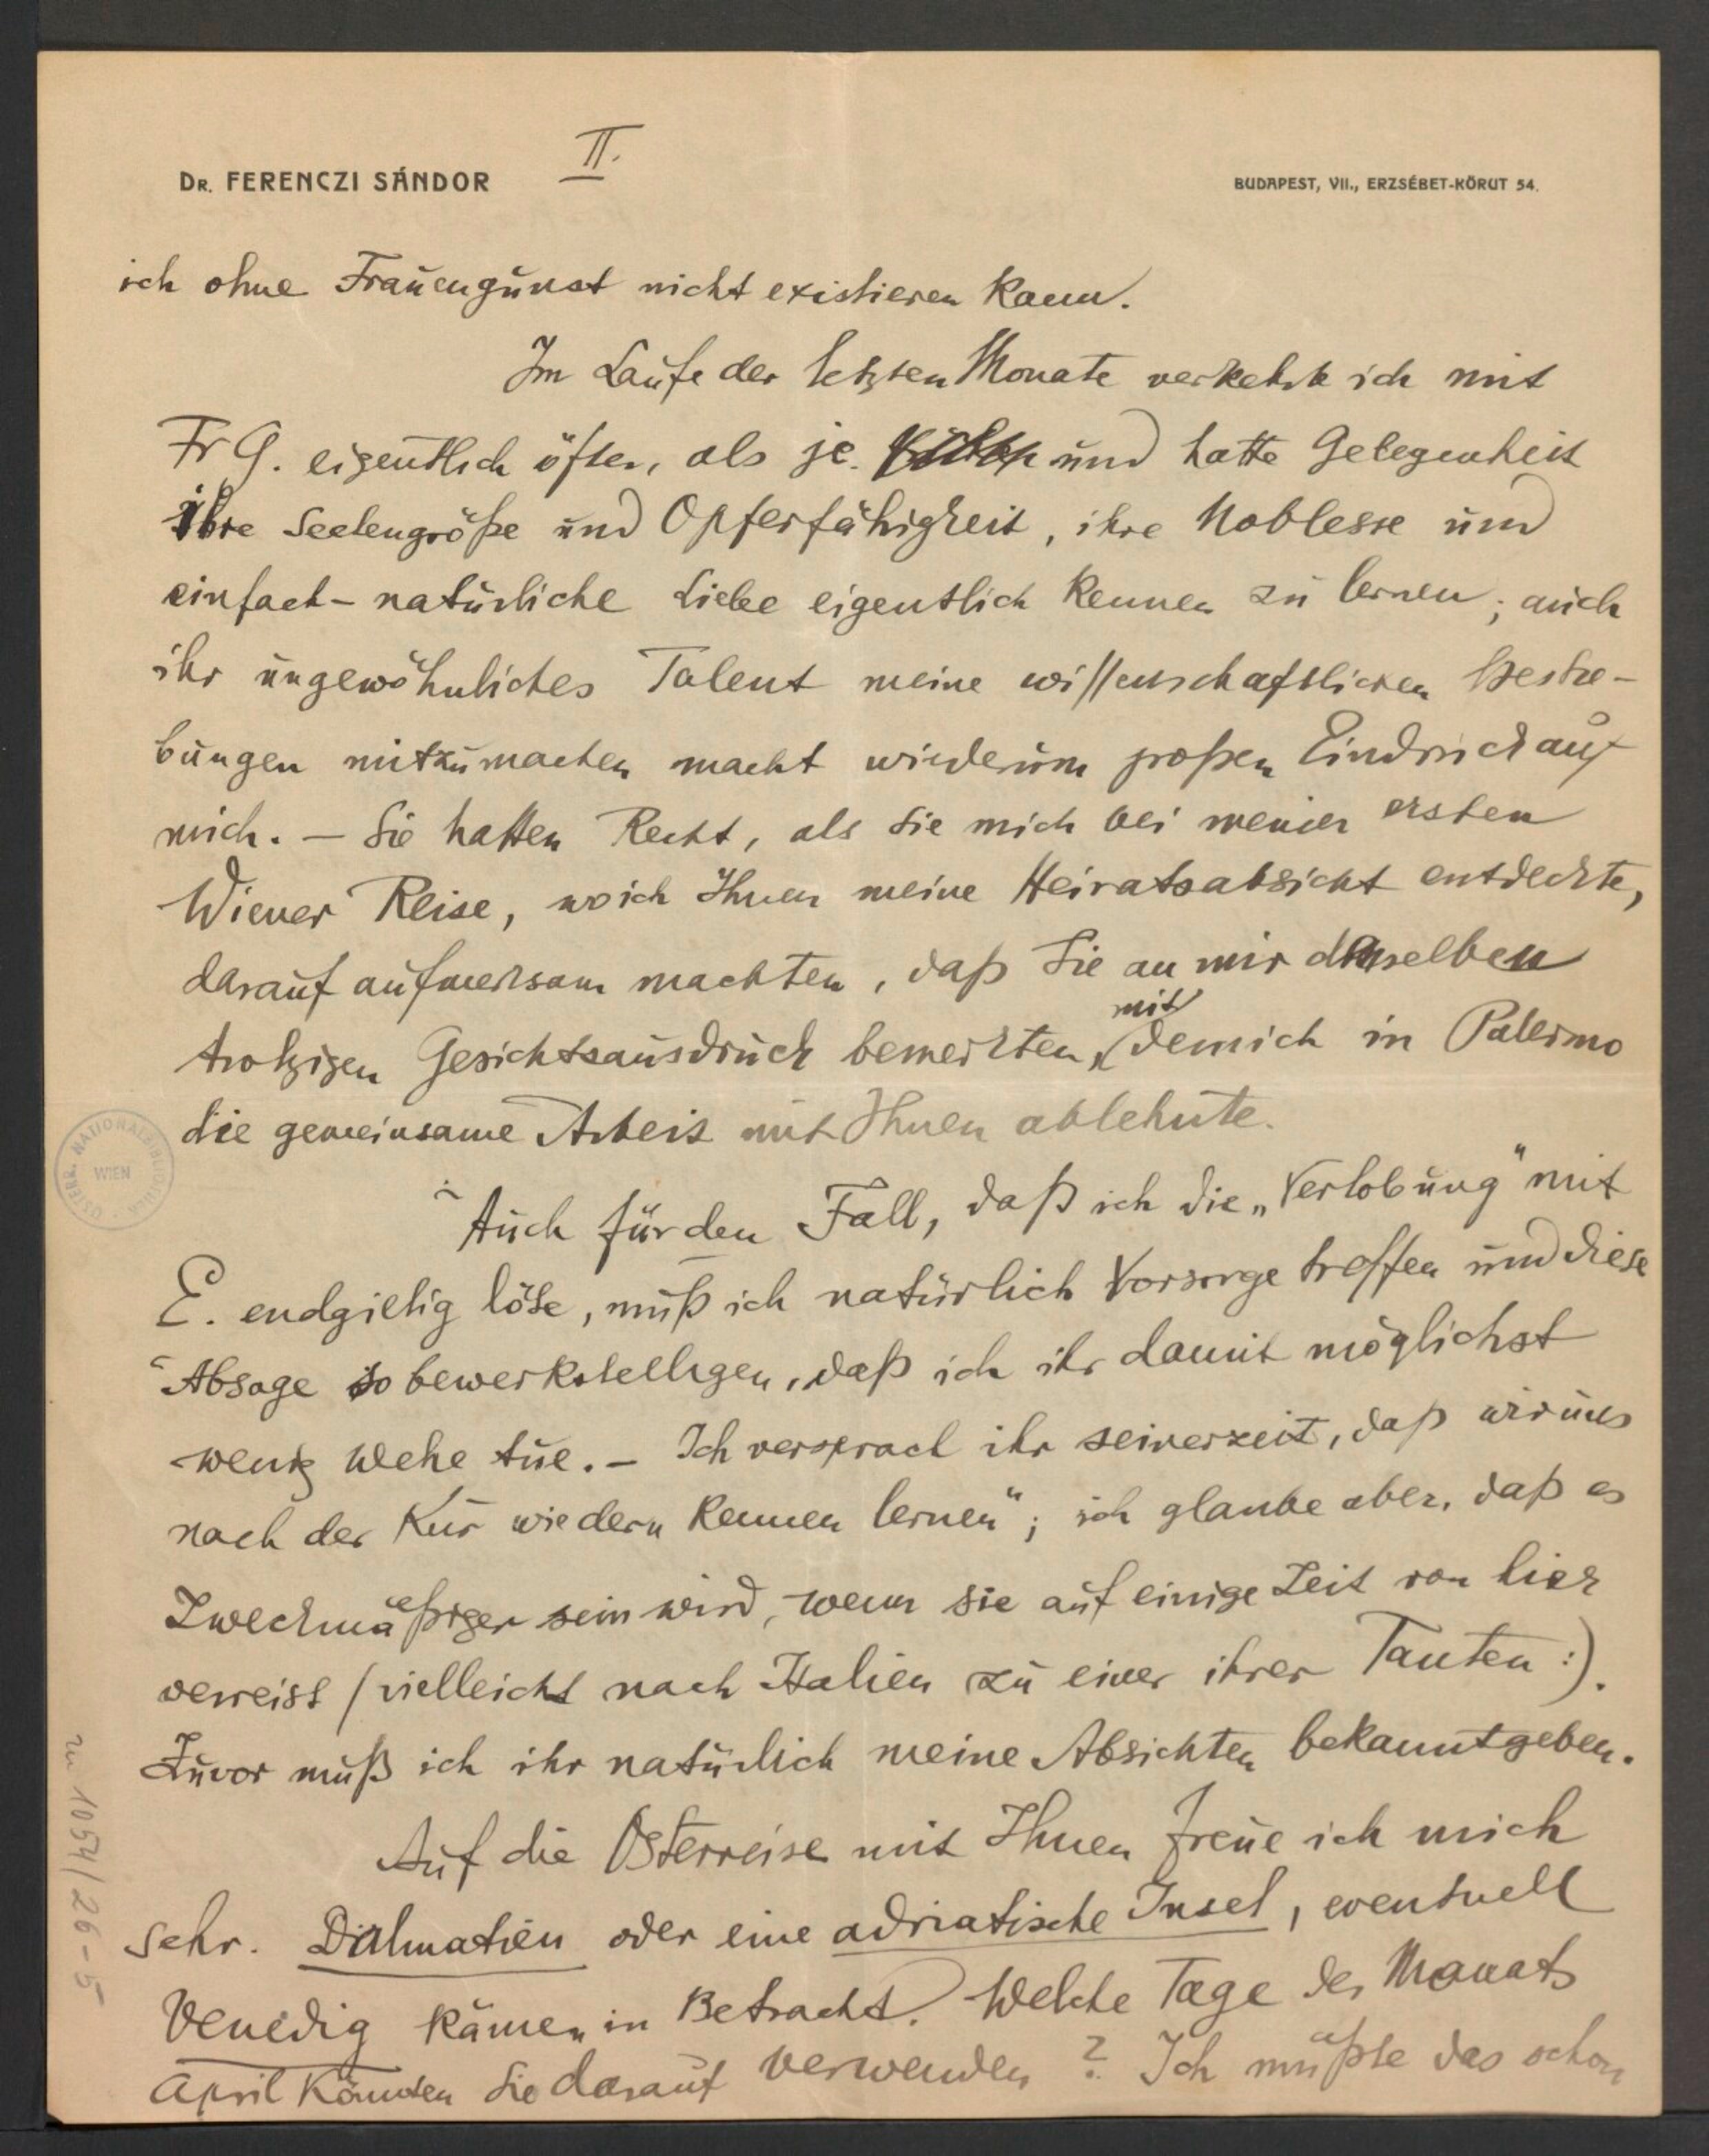 II.
DR. FERENCZI SÁNDOR
BUDAPEST, VII., ERZSÉBET-KÖRUT 54.
ich ohne Frauengunst nicht existieren kann.
Im Laufe der letzten Monate verkehrte ich mit
Fr G. eigentlich öfter, als je und hatte Gelegenheit
ihre Seelengröße und Opferfähigkeit, ihre Noblesse und
einfach-natürliche Liebe eigentlich kennen zu lernen; auch
ihr ungewöhnliches Talent meine wissenschaftlichen Bestre-
bungen mitzumachen macht wiederum großen Eindruck auf
mich. — Sie hatten Recht, als Sie mich bei meiner ersten
Wiener Reise, wo ich Ihnen meine Heiratsabsicht entdeckte,
darauf aufmerksam machten, daß Sie an mir denselben
trotzigen Gesichtsausdruck bemerkten, mit dem ich in Palermo
die gemeinsame Arbeit mit Ihnen ablehnte.
Auch für den Fall, daß ich die „Verlobung" mit
E. endgiltig löse, muß ich natürlich Vorsorge treffen und diese
Absage so bewerkstelligen, daß ich ihr damit möglichst
wenig Wehe tue. — Ich versprach ihr seinerzeit, daß wir uns
nach der Kur wieder „kennen lernen"; ich glaube aber, daß es
zweckmäßiger sein wird, wenn sie auf einige Zeit von hier
verreist (vielleicht nach Italien zu einer ihrer Tanten:).
Zuvor muß ich ihr natürlich meine Absichten bekanntgeben.
Auf die Osterreise mit Ihnen freue ich mich
sehr. Dalmatien oder eine adriatische Insel, eventuell
Venedig kämen in Betracht. Welche Tage des Monats
April könnten Sie darauf verwenden? Ich müßte das schon
ÖSTERR. NATIONALBIBLIOTHEK
WIEN
zu 1054/26-5